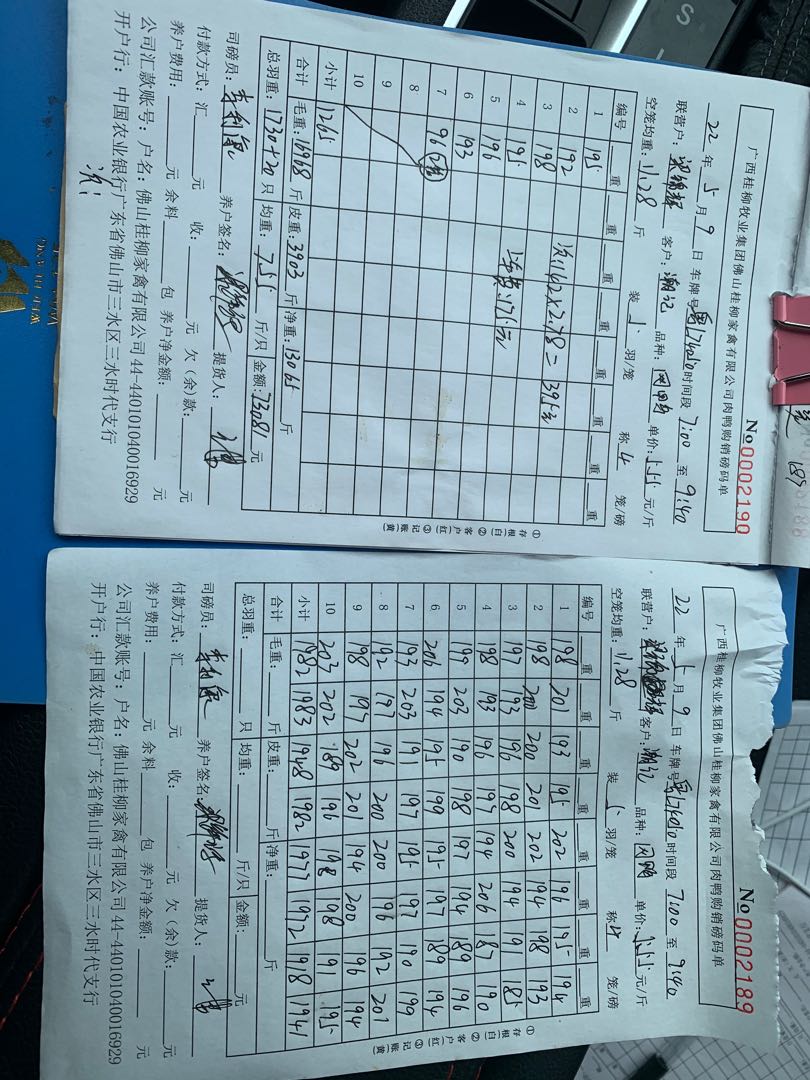 广西桂柳牧业集团佛山桂柳家禽有限公司肉鸭购销磅码单
№ 0002190
22 年 5 月 9 日 车牌号 时间段 7:00 至 9:40
联营户: 客户: 潮记 品种: 单价: 元/斤
空笼均重: 11.28 斤 装 5 羽/笼 称 4 笼/磅
编号 重 重 重 重 重 重 重 重
1 195
2 192 次142×2.78=395元
3 198
4 195 171元
5 196
6 193
7 96
8
9
10
小计 1265
合计 毛重: 16968 斤 皮重: 3903 斤 净重: 13065 斤
总羽重: 1730+20 只 均重: 7.55 斤/只 金额: 73081 元
司磅员: 养户签名: 提货人:
付款方式: 汇 元 收: 元 欠(余)款: 元
养户费用: 元 余料 包 养户净金额: 元
公司汇款账号: 户名: 佛山桂柳家禽有限公司 44-440101040016929
开户行: 中国农业银行广东省佛山市三水区三水时代支行
①存根(白) ②客户(红) ③记账(黄)
广西桂柳牧业集团佛山桂柳家禽有限公司肉鸭购销磅码单
№ 0002189
22 年 5 月 9 日 车牌号 时间段 7:00 至 9:40
联营户: 客户: 潮记 品种: 单价: 元/斤
空笼均重: 11.28 斤 装 5 羽/笼 称 4 笼/磅
编号 重 重 重 重 重 重 重 重
1 198 201 193 195 202 196 195 194
2 198 200 200 201 202 194 198 193
3 197 193 196 198 200 194 191 185
4 198 193 196 197 194 206 187 190
5 199 203 190 198 197 194 189 196
6 206 194 195 199 195 197 189 194
7 193 203 191 197 195 197 190 199
8 192 197 196 200 200 196 192 201
9 198 197 202 201 194 200 196 194
10 203 202 189 196 198 198 191 195
小计 1982 1983 1948 1982 1977 1972 1918 1941
合计 毛重: 斤 皮重: 斤 净重: 斤
总羽重: 只 均重: 斤/只 金额: 元
司磅员: 养户签名: 提货人:
付款方式: 汇 元 收: 元 欠(余)款: 元
养户费用: 元 余料 包 养户净金额: 元
公司汇款账号: 户名: 佛山桂柳家禽有限公司 44-440101040016929
开户行: 中国农业银行广东省佛山市三水区三水时代支行
①存根(白) ②客户(红) ③记账(黄)